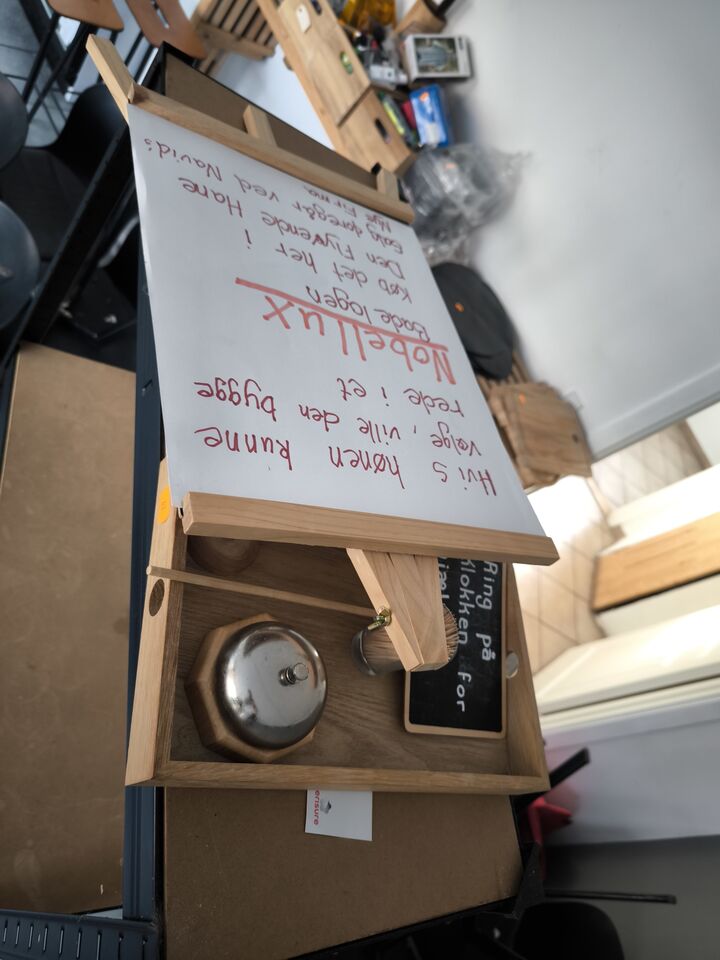 Hvis hønen kunne
vælge, ville den bygge
rede i et
Nobellux
Bade lagen
Køb det her i
Den Flyvende Hane
Salg foregår ved Navid's
Nye Firma
Ring på
klokken for
erisure